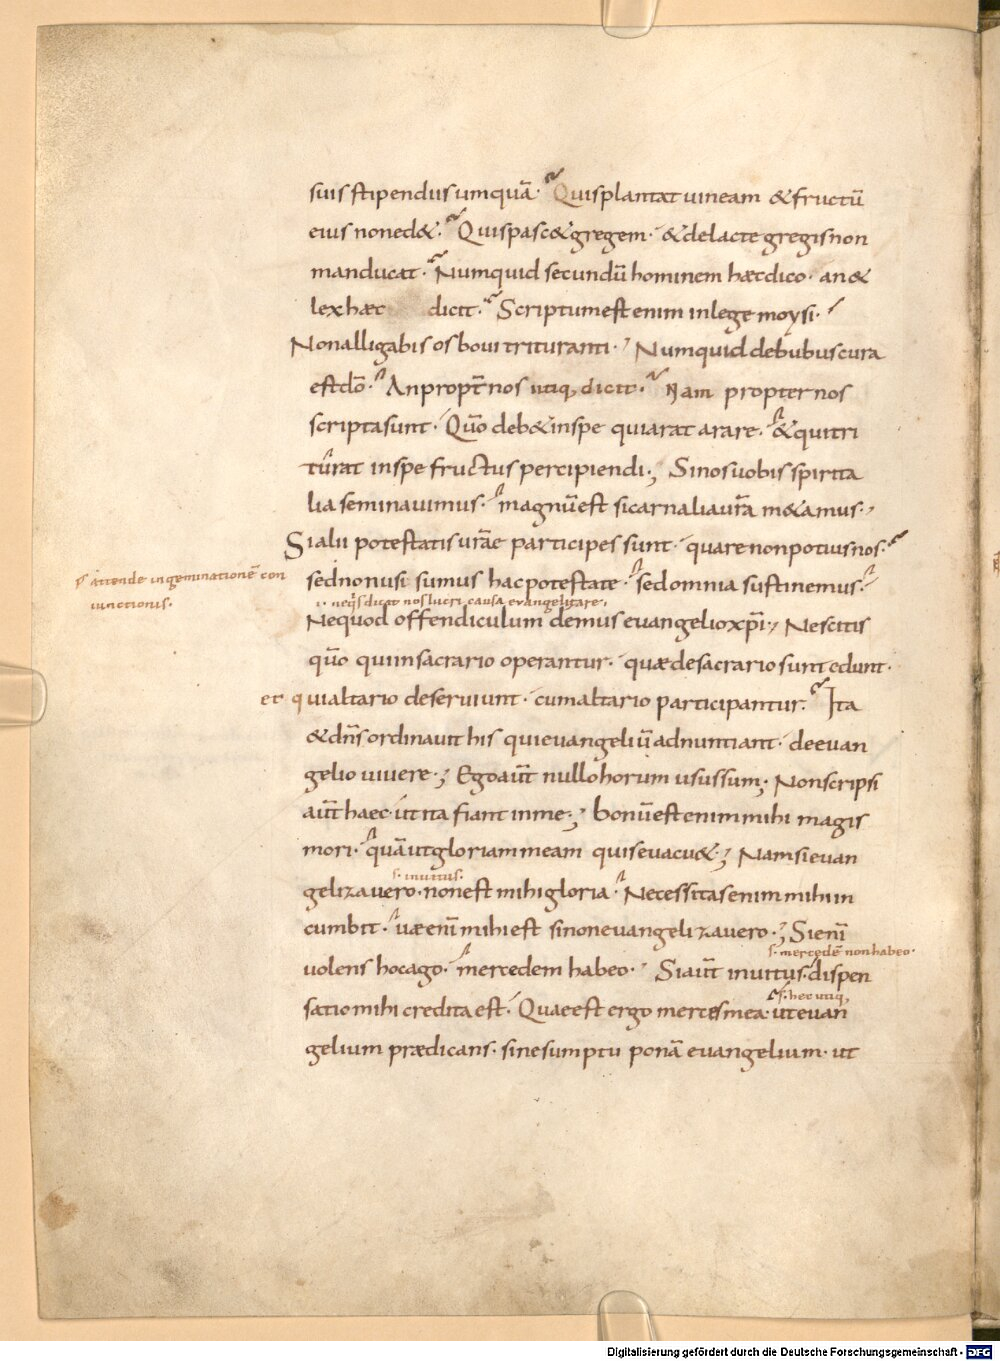 suis stipendiis umquā· Quis plantat uineam & fructū
eius non ed&· Quis pasc& gregem· & de lacte gregis non
manducat· Numquid secundū hominem hæc dico· an &
lex hæc dicit· Scriptum est enim in lege moysi·
Non alligabis os boui trituranti· Numquid de bubus cura
est dō· An propt̄ nos utiq, dicit· Nam propter nos
scripta sunt· Qūo deb& in spe qui arat arare· & qui tri
turat in spe fructus percipiendi; Si nos uobis spirita
lia seminauimus· magnū est si carnalia ur̄a m&amus·
Si alii potestatis ur̄ae participes sunt· quare non potius nos·
sed non usi sumus hac potestate· sed omnia sustinemus·
attende ingeminationē con
iunctionis·
i· neq̇s dicat nos lucri causa evangelizare,
Ne quod offendiculum demus euangelio xp̄i; Nescitis
qūo qui in sacrario operantur· quæ de sacrario sunt edunt·
et qui altario deseruiunt· cum altario participantur· Ita
& dn̄s ordinauit his qui euangeliū adnuntiant· de euan
gelio uiuere·; Ego aūt nullo horum usus sum; Non scripsi
aūt haec· ut ita fiant in me·; bonū est enim mihi magis
mori· quā ut gloriam meam quis euacu&·; Nam si euan
s· inuitus·
gelizauero· non est mihi gloria· Necessitas enim mihi in
cumbit· uæ enī mihi est si non euangelizauero·; Si enī
s· mercedē non habeo·
uolens hoc ago· mercedem habeo· Si aūt inuitus· dispen
s· hec utiq,
satio mihi credita est· Quae est ergo merces mea· ut euan
gelium prædicans· sine sumptu ponā euangelium· ut
Digitalisierung gefördert durch die Deutsche Forschungsgemeinschaft - DFG